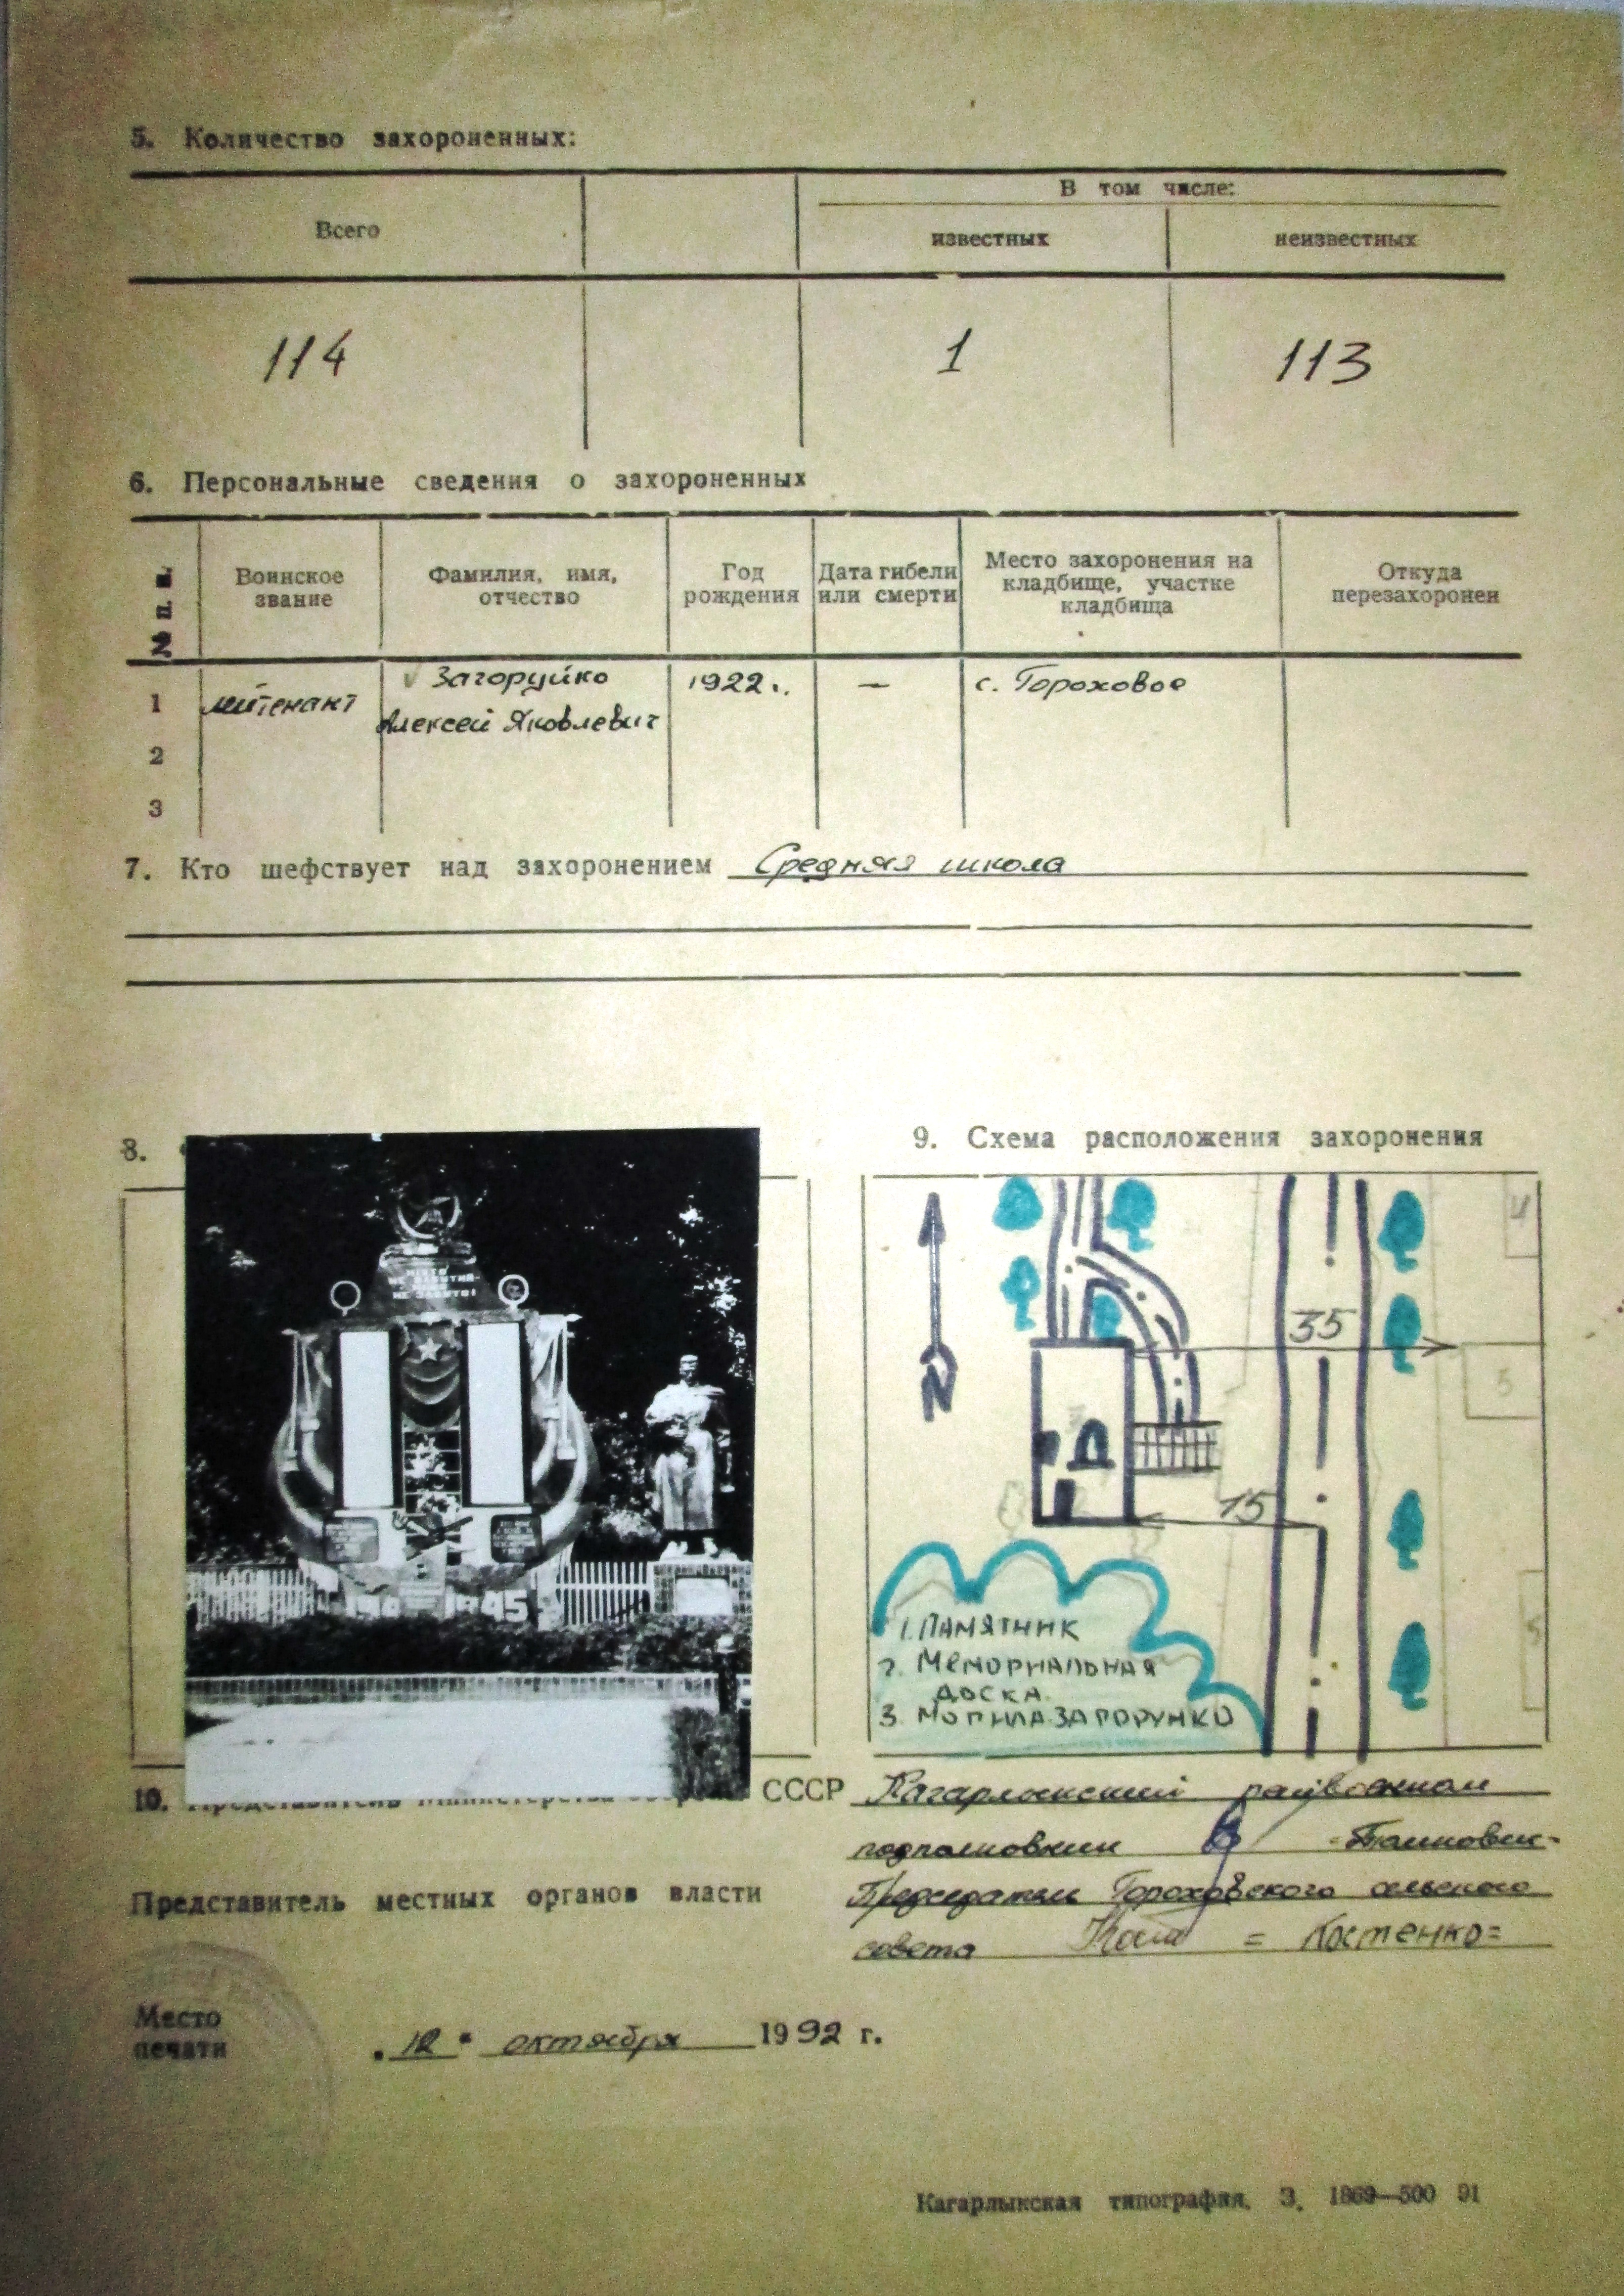 5. Количество захороненных:
В том числе:
Всего
известных
неизвестных
114
1
113
6. Персональные сведения о захороненных
№ п. п.
Воинское звание
Фамилия, имя, отчество
Год рождения
Дата гибели или смерти
Место захоронения на кладбище, участке кладбища
Откуда перезахоронен
1
лейтенант
Загоруйко
Алексей Яковлевич
1922 г.
—
с. Гороховое
2
3
7. Кто шефствует над захоронением Средняя школа
8.
9. Схема расположения захоронения
НЕ ЗАБУТО!
1945
N
35
15
4
5
1. ПАМЯТНИК
2. МЕМОРИАЛЬНАЯ
ДОСКА
3. МОГИЛА ЗАГОРУЙКО
10. Представитель Министерства обороны СССР Кагарлыкский райвоенком
подполковник
Председатель Гороховского сельского
Представитель местных органов власти
совета = Костенко=
Место
печати
"12" октября 1992 г.
Кагарлыкская типография. З. 1869—500 91